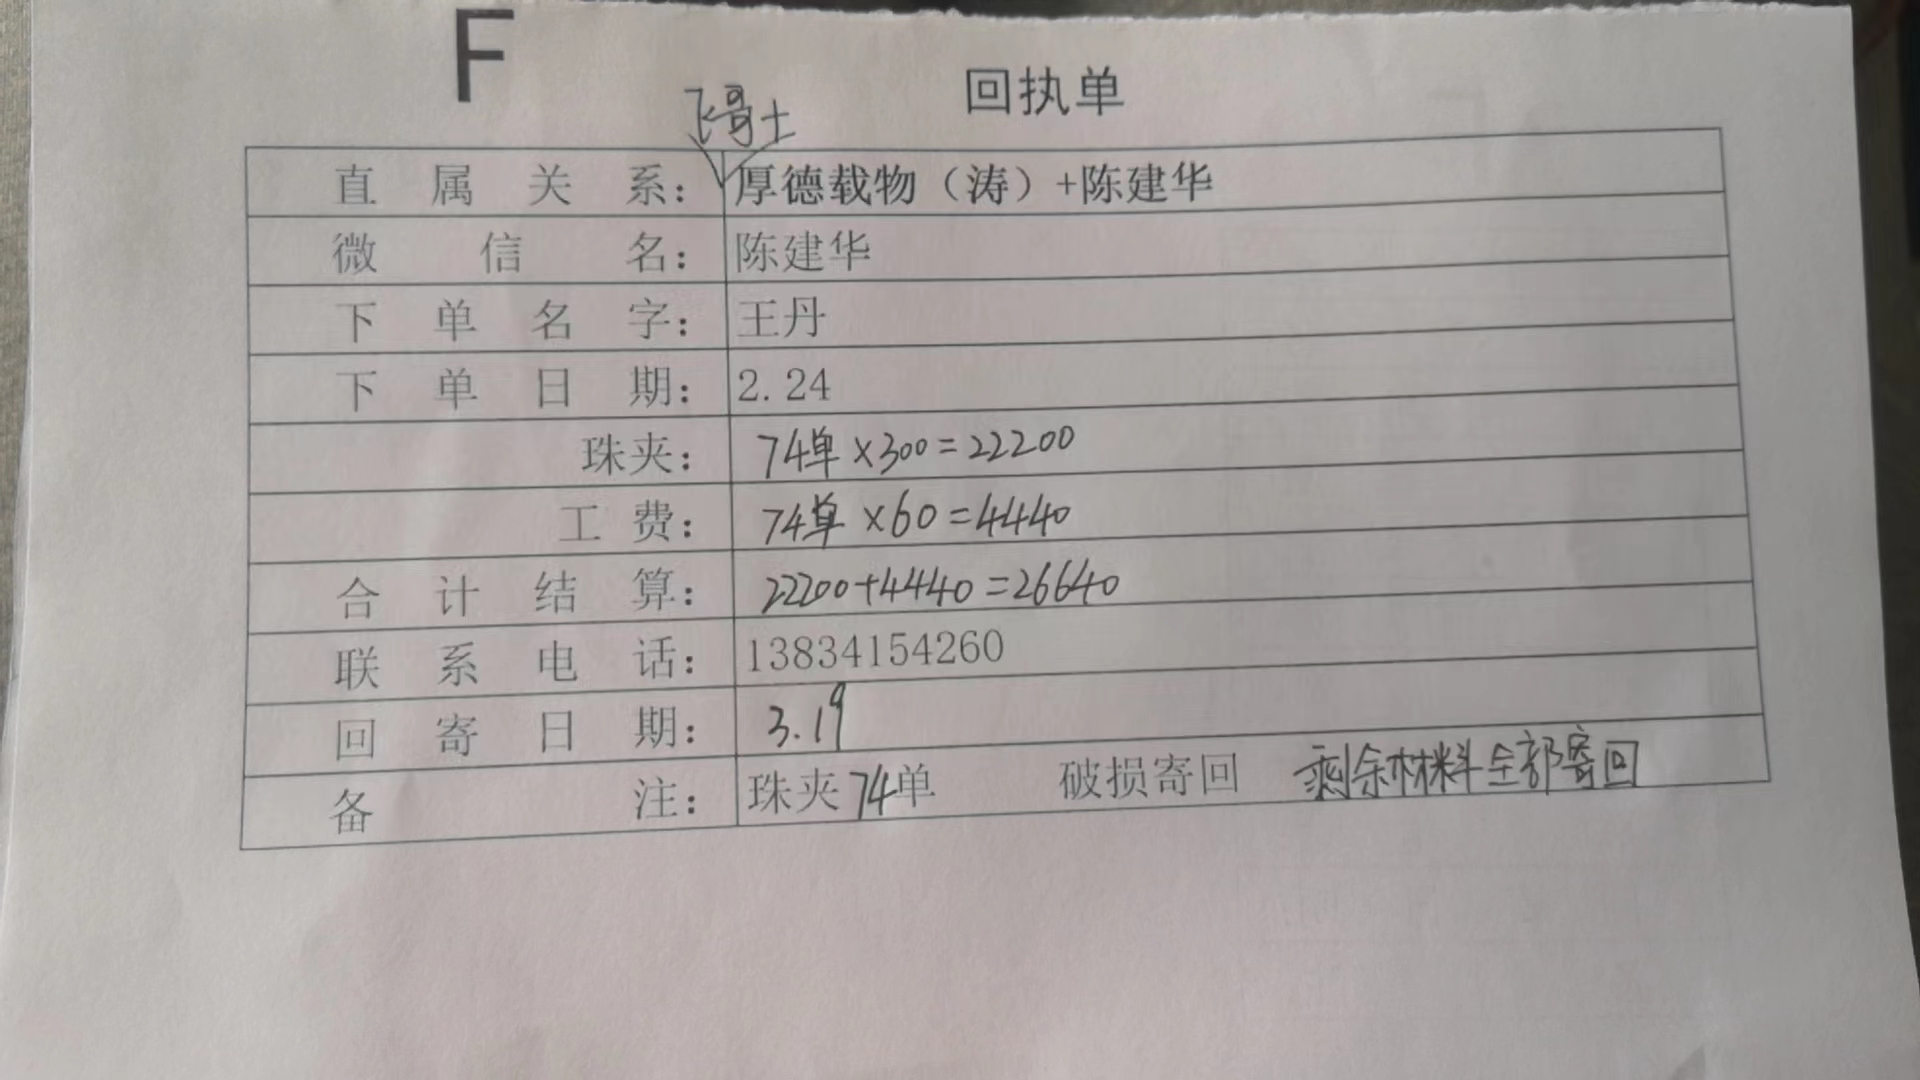 F
回执单
飞哥+
直属关系：厚德载物（涛）+陈建华
微信名：陈建华
下单名字：王丹
下单日期：2.24
珠夹：74单×300=22200
工费：74单×60=4440
合计结算：22200+4440=26640
联系电话：13834154260
回寄日期：3.19
备注：珠夹74单 破损寄回 剩余材料全部寄回